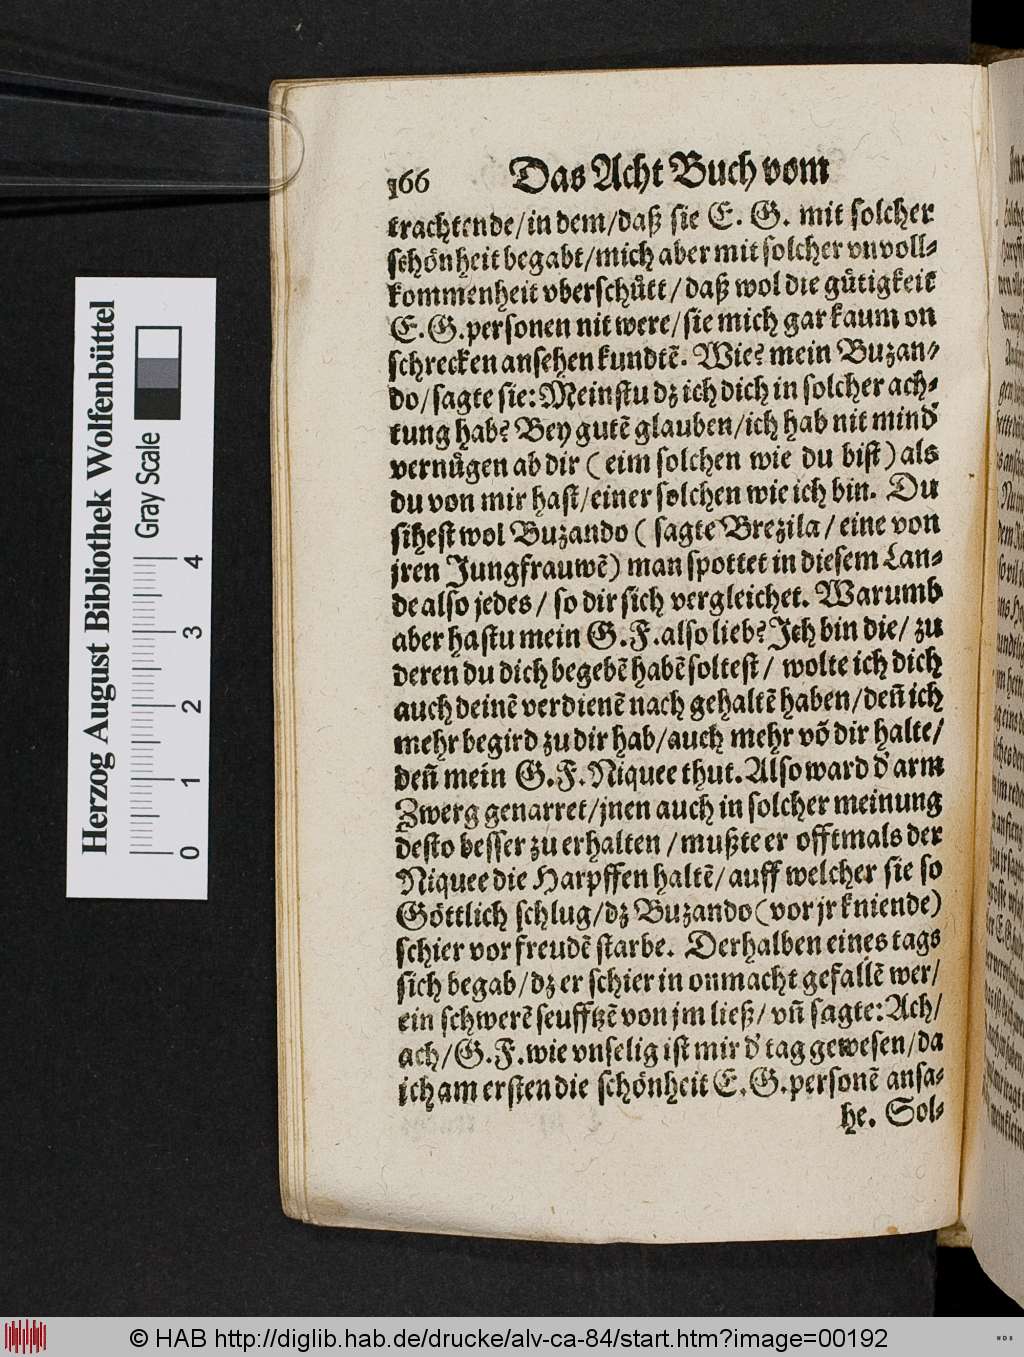 166 Das Acht Buch vom
trachtende/in dem/daß sie E. G. mit solcher
schönheit begabt/mich aber mit solcher vnvoll-
kommenheit vberschůtt/daß wol die gůtigkeit
E. G. personen nit were/sie mich gar kaum on
schrecken ansehen kundtẽ. Wie? mein Buzan-
do/sagte sie: Meinstu dz ich dich in solcher ach-
tung hab? Bey gutẽ glauben/ich hab nit mind'
vernůgen ab dir (eim solchen wie du bist) als
du von mir hast/einer solchen wie ich bin. Du
sihest wol Buzando (sagte Brezila/eine von
jren Jungfrauwẽ) man spottet in diesem Lan-
de also jedes/so dir sich vergleichet. Warumb
aber hastu mein G. F. also lieb? Ich bin die/zu
deren du dich begebẽ habẽ soltest/wolte ich dich
auch deinẽ verdienẽ nach gehaltẽ haben/deñ ich
mehr begird zu dir hab/auch mehr võ dir halte/
deñ mein G. F. Niquee thut. Also ward d' arm
Zwerg genarret/jnen auch in solcher meinung
desto besser zu erhalten/mußte er offtmals der
Niquee die Harpffen haltẽ/auff welcher sie so
Göttlich schlug/dz Buzando (vor jr kniende)
schier vor freudẽ starbe. Derhalben eines tags
sich begab/dz er schier in onmacht gefallẽ wer/
ein schwerẽ seufftzẽ von jm ließ/vñ sagte: Ach/
ach/G. F. wie vnselig ist mir d' tag gewesen/da
ich am ersten die schönheit E. G. personẽ ansa-
he. Sol-
Herzog August Bibliothek Wolfenbüttel
Gray Scale
0 1 2 3 4
© HAB http://diglib.hab.de/drucke/alv-ca-84/start.htm?image=00192